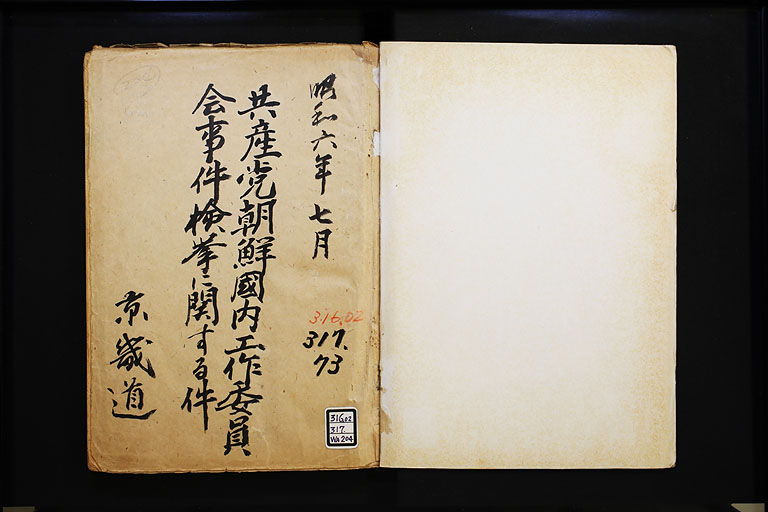 昭和六年七月
共産党朝鮮國内工作委員
会事件検挙に関する件
京畿道
316.02
317.
73
316.02
317.
Wa 204